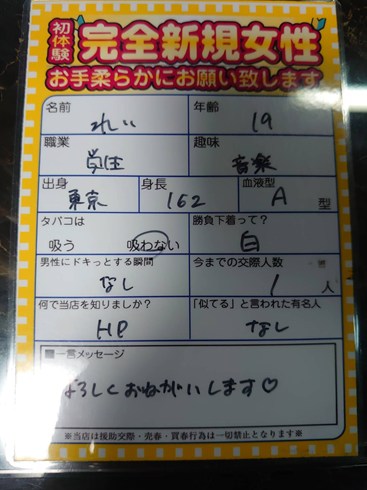 初体験
完全新規女性
お手柔らかにお願い致します
名前 年齢
れい 19
職業 趣味
学生 音楽
出身 身長 血液型
東京 162 A 型
タバコは 勝負下着って?
吸う 吸わない 白
男性にドキっとする瞬間 今までの交際人数
なし 1 人
何で当店を知りましたか? 「似てる」と言われた有名人
HP なし
■一言メッセージ
よろしくおねがいします♡
※当店は援助交際・売春・買春行為は一切禁止となります※